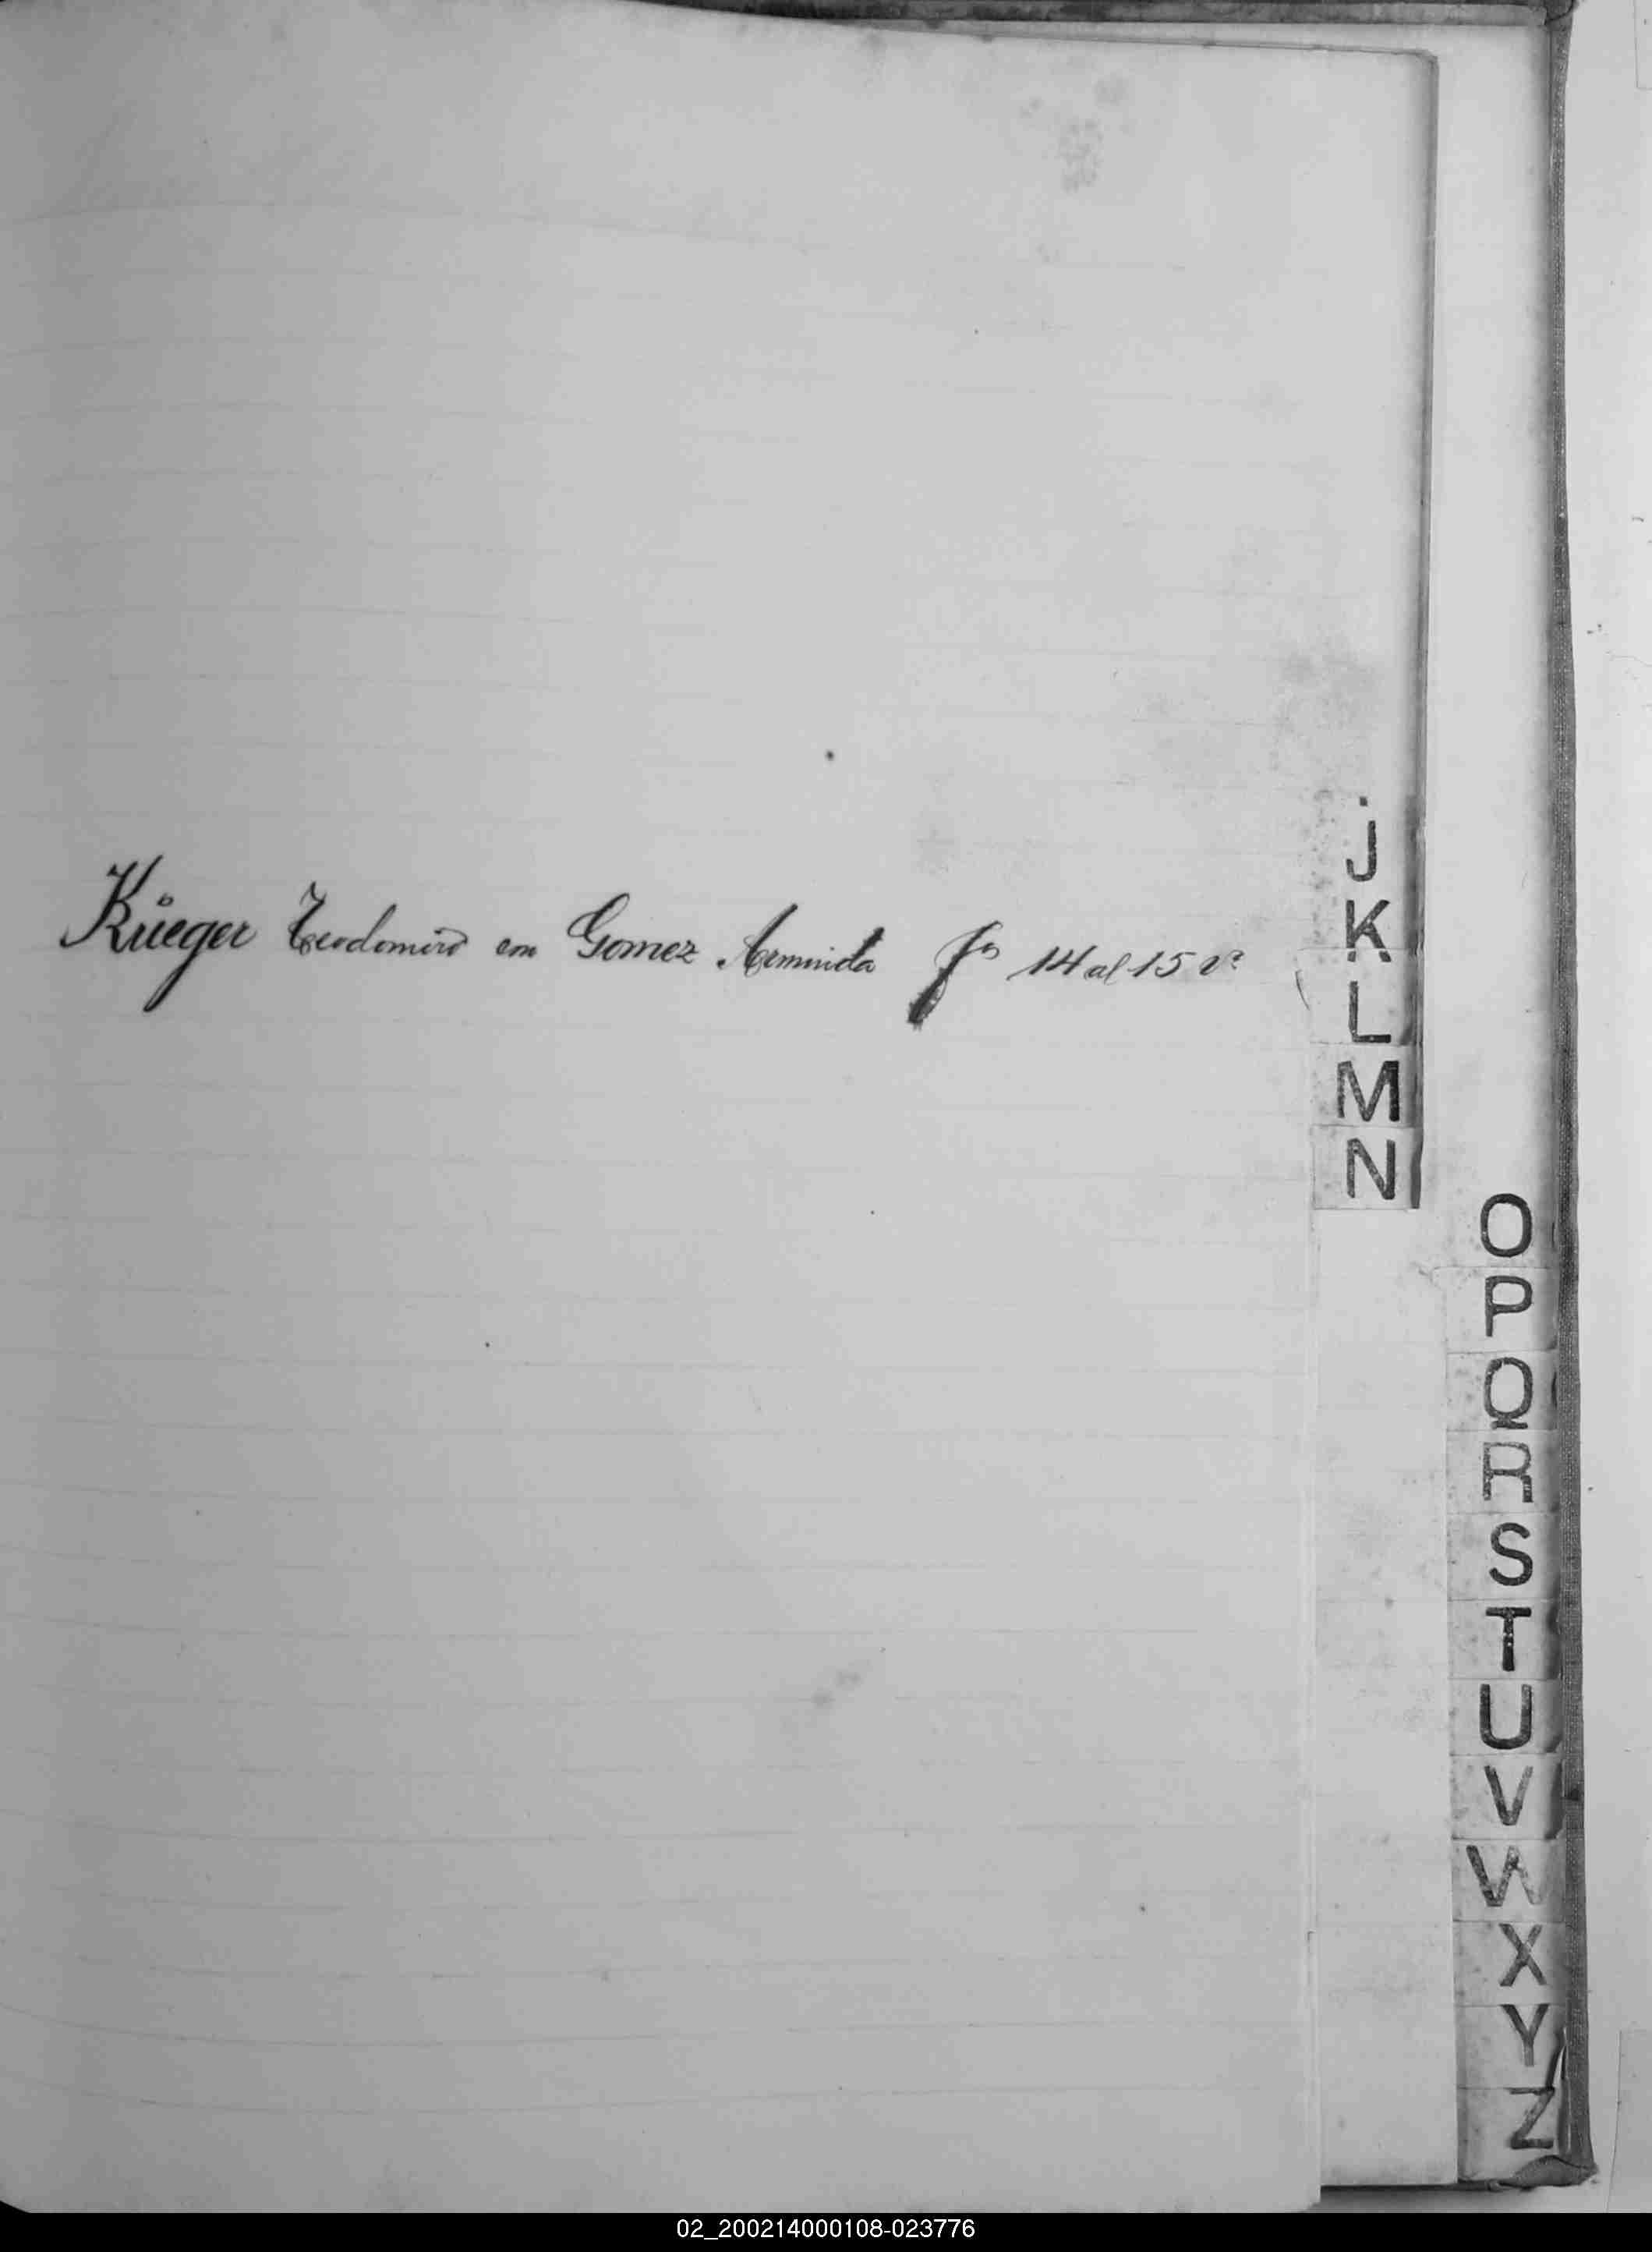 Krüeger Teodomiro con Gomez Arminda fs 14 al 15 vª
J
K
L
M
N
O
P
Q
R
S
T
U
V
W
X
Y
Z
02_200214000108-023776